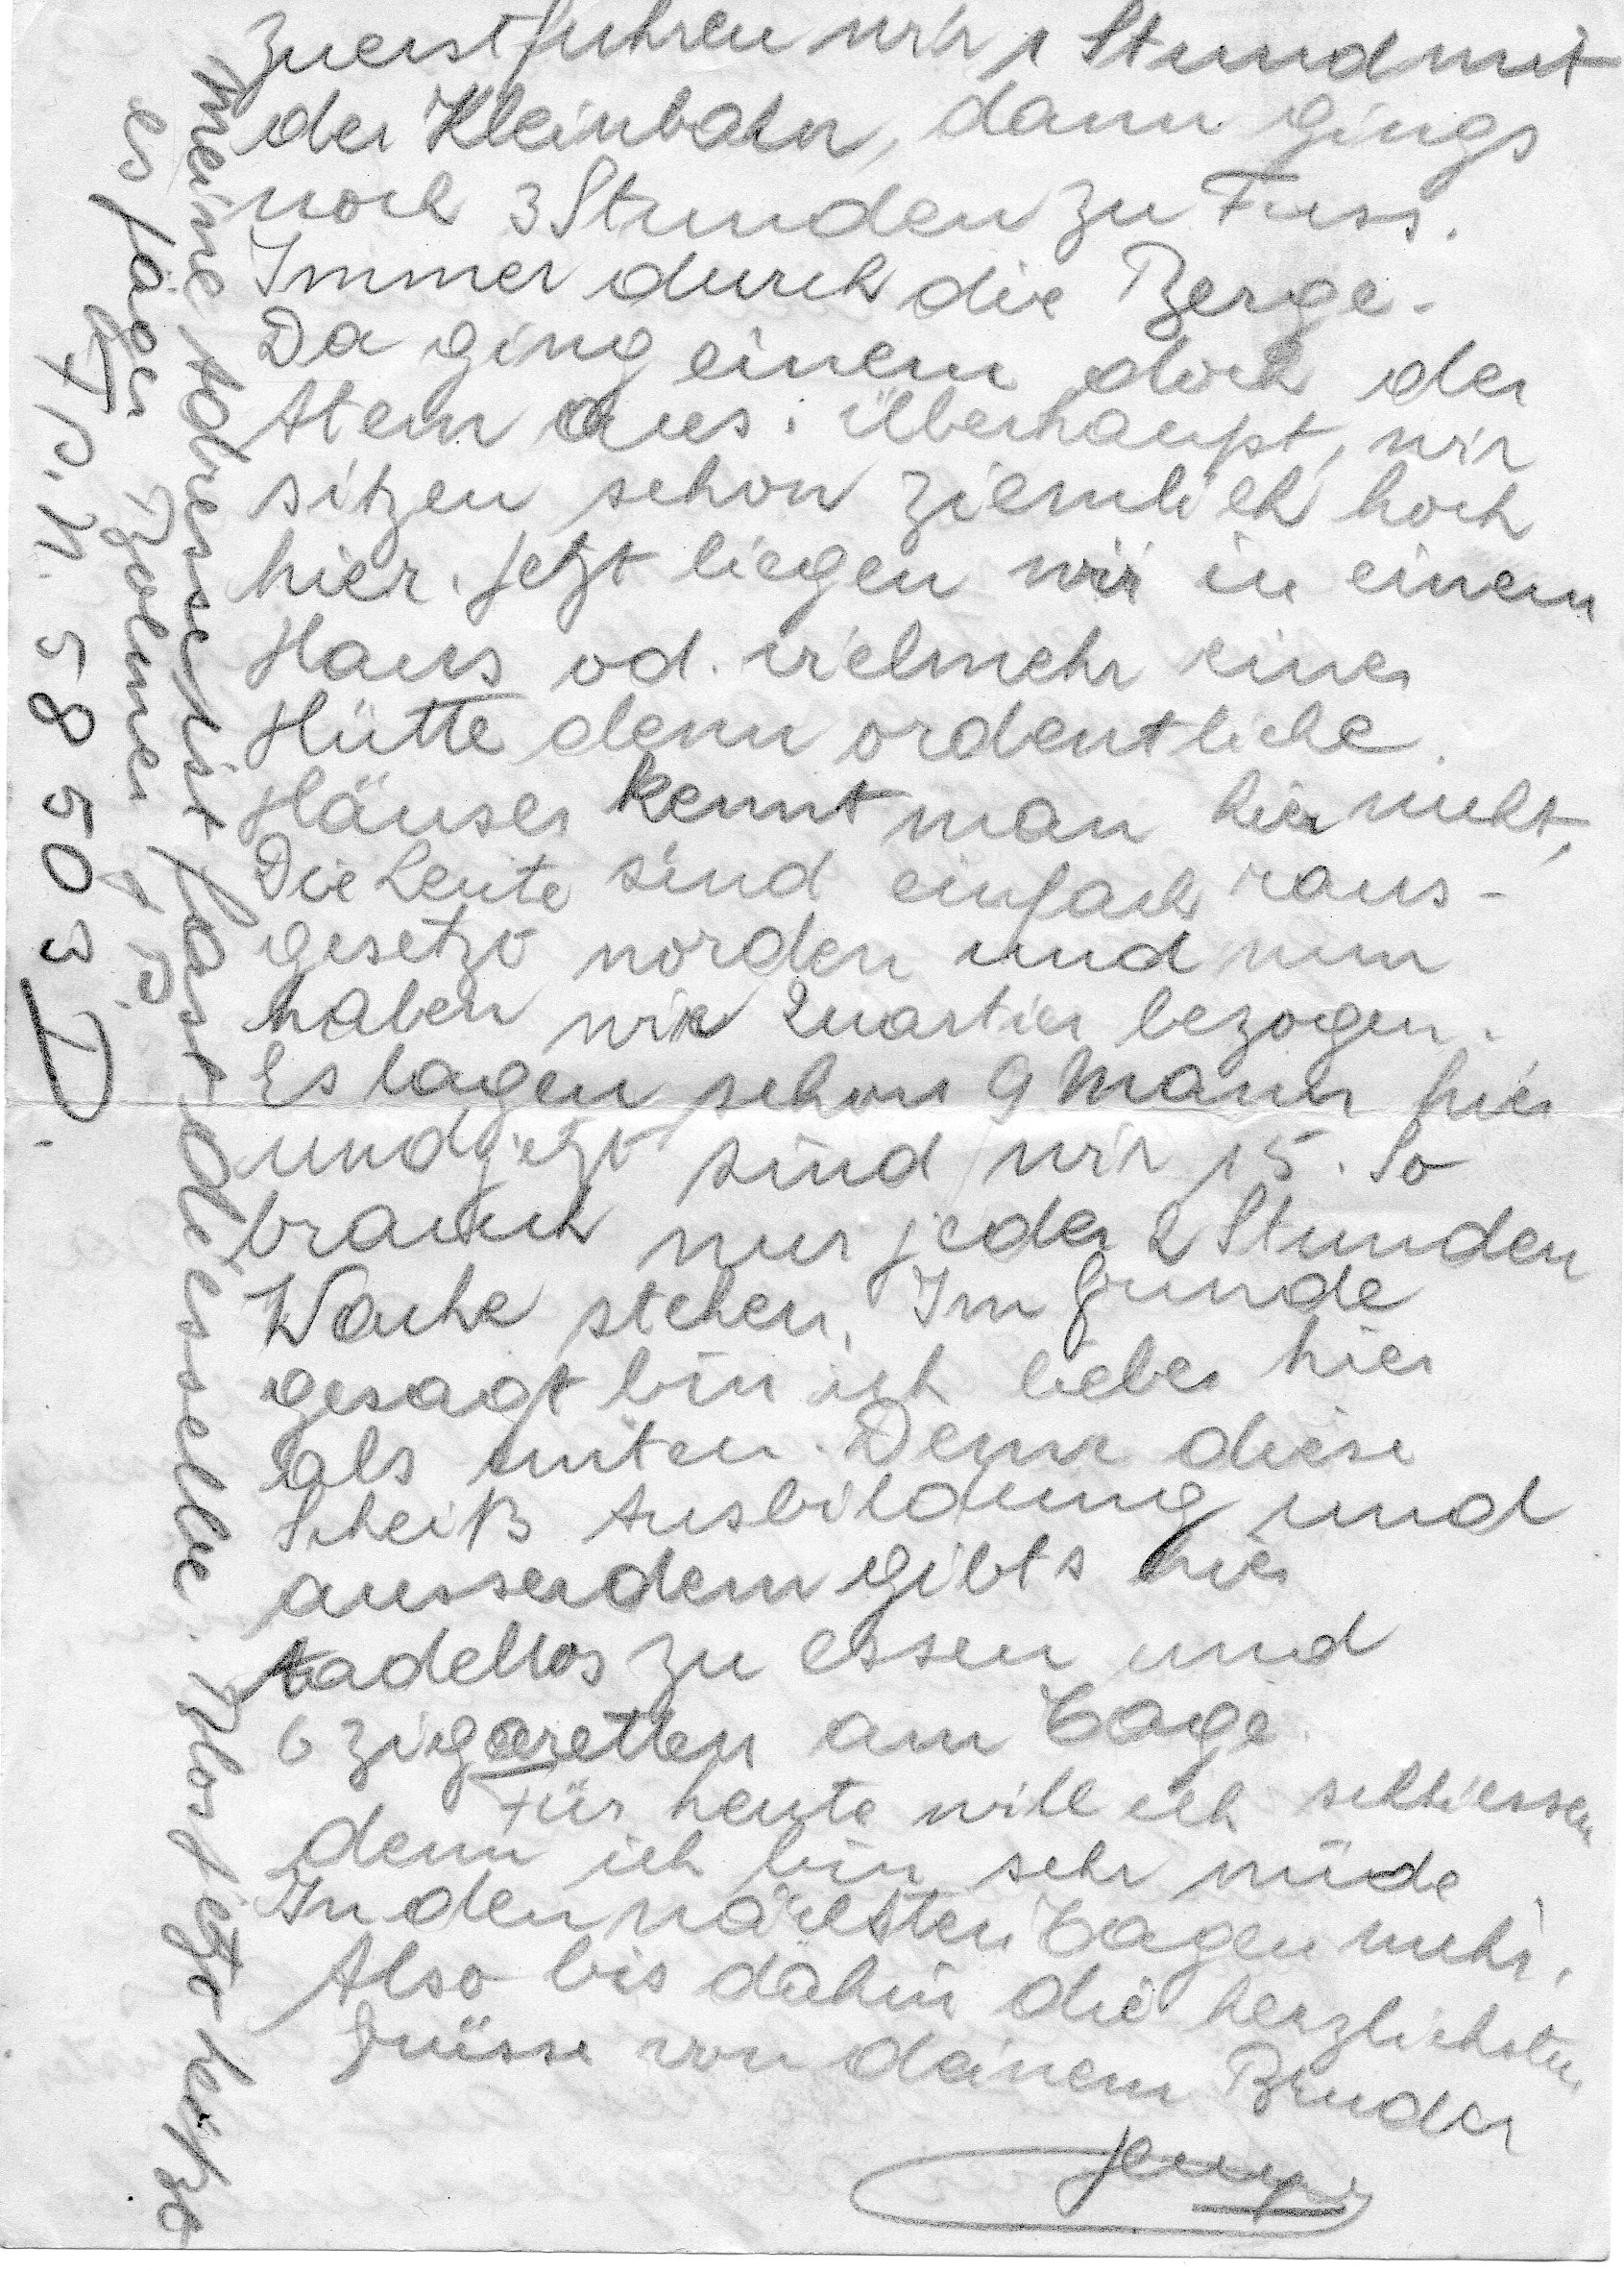 Zuerst fuhren wir 1 Stund mit
der Kleinbahn, dann gings
noch 3 Stunden zu Fuss.
Immer durch die Berge.
Da ging einem doch der
Atem aus. Überhaupt, wir
sitzen schon ziemlich hoch
hier. Jetzt liegen wir in einem
Haus od. vielmehr einer
Hütte denn ordentliche
Häuser kennt man hier nicht,
Die Leute sind einfach raus-
gesetzt worden und nun
haben wir Quartier bezogen.
Es lagen schon 9 Mann hier
und jetzt sind wir 15. So
brauch nur jeder 2 Stunden
Wache stehen. Im Grunde
gesagt bin ich lieber hier
als unten. Denn diese
Scheiß Ausbildung und
ausserdem gibts hier
tadellos zu essen und
6 Zigaretten am Tage.
Für heute will ich schliessen
denn ich bin sehr müde
In den nächsten Tagen mehr.
Also bis dahin die herzlichsten
Grüsse von deinem Bruder
Meine Adresse ist fast dieselbe. Blos jetzt heißt
es Jäger
F.P.N. 58503 D.